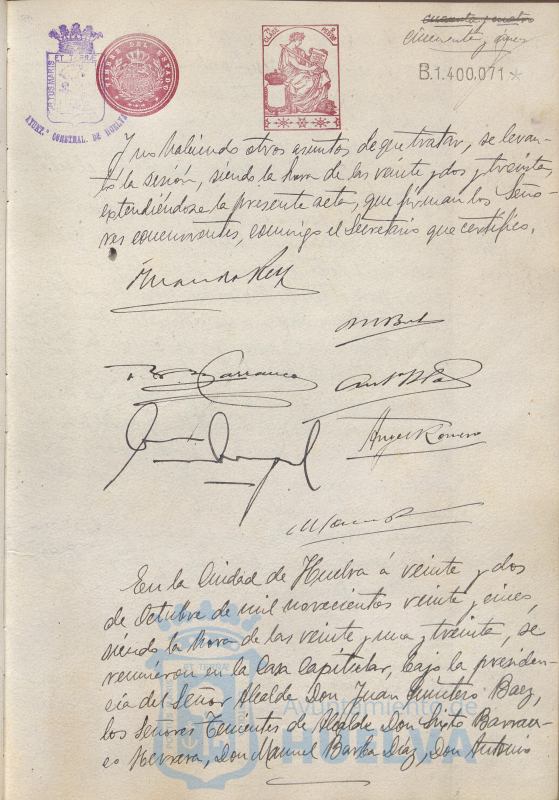 PORTUS MARIS ET TERRÆ
AYUNT.º CONSTNAL. DE HUELVA
TIMBRE DEL ESTADO
cuarenta y cuatro
cincuenta y
B.1.400.071*
Y no habiendo otros asuntos de que tratar, se levan-
tó la sesión, siendo la hora de las veinte y dos y treinta,
extendiéndose la presente acta, que firman los Seño-
res concurrentes, conmigo el Secretario que certifico.
Carranca
Angel Romero
En la Ciudad de Huelva á veinte y dos
de Octubre de mil novecientos veinte y cinco,
siendo la hora de las veinte y una y treinta, se
reunieron en la Casa Capitular, bajo la presiden-
cia del Señor Alcalde Don Juan Quintero Baez,
los Señores Tenientes de Alcalde Don Sixto Barrae-
ro Herrera, Don Manuel Barba Diaz, Don Antonio
Ayuntamiento de
HUELVA